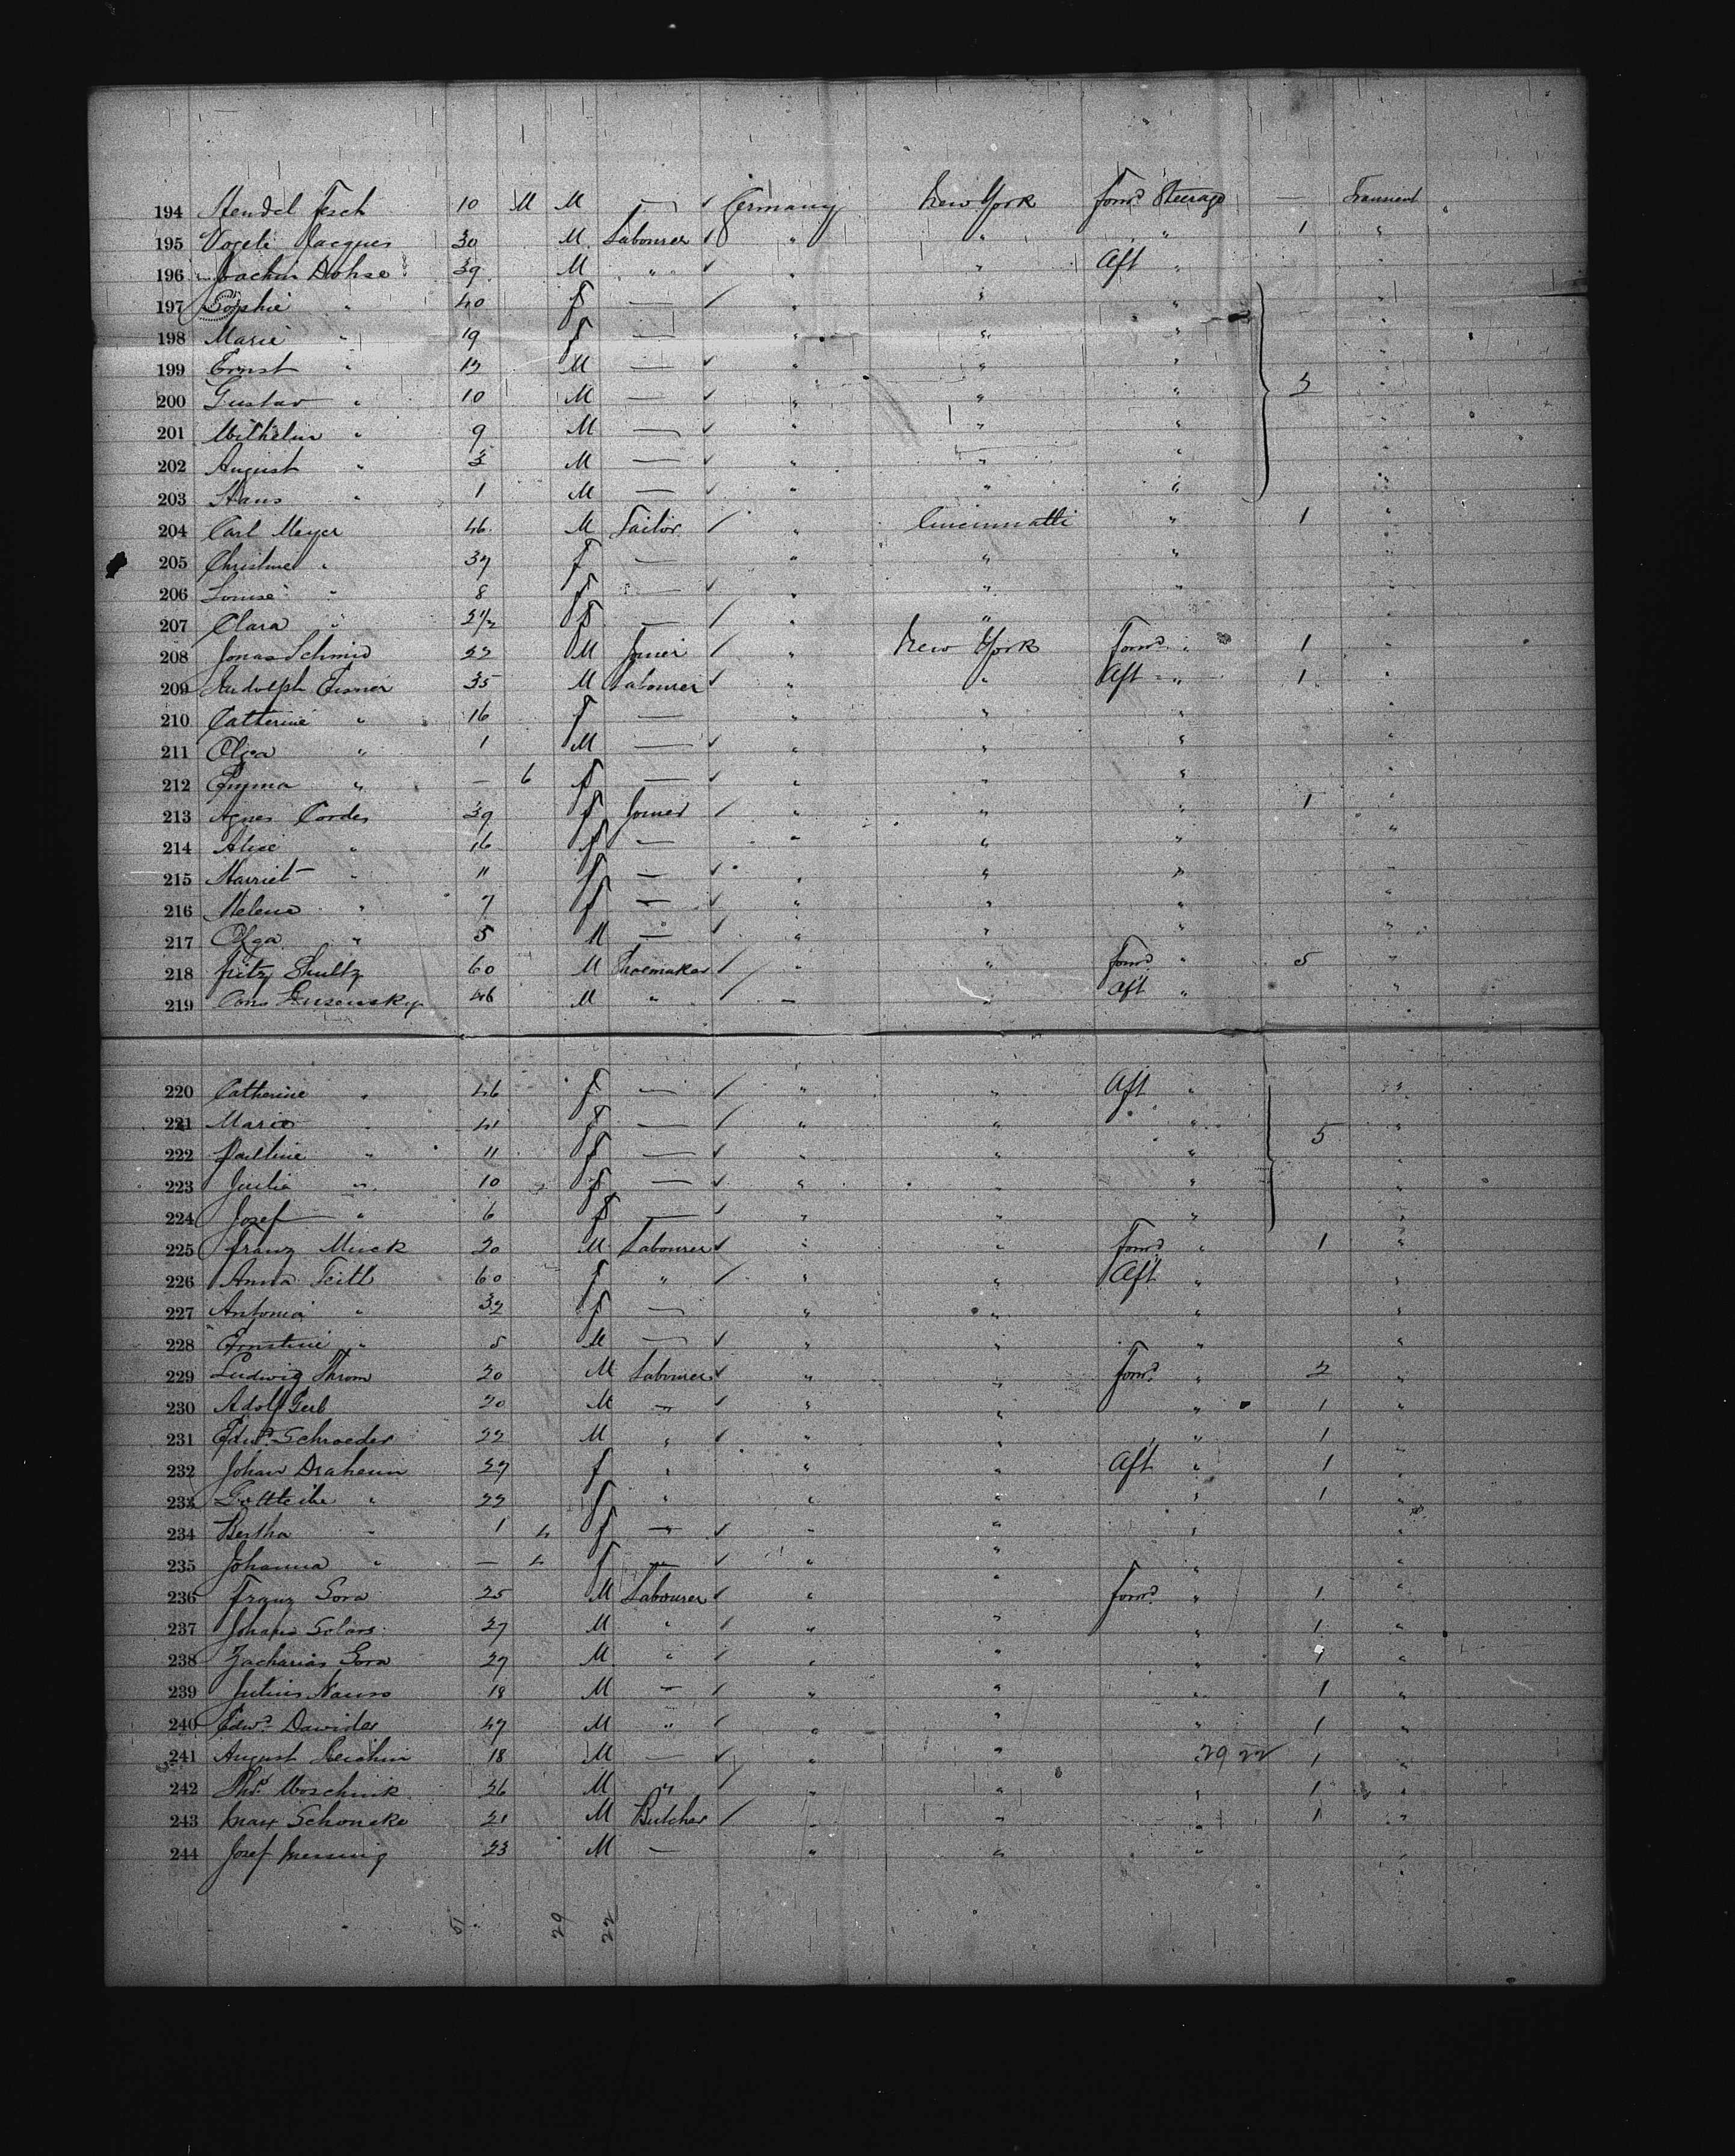 194 Mendel Fesch 10 M M — ✓ Germany New York Forwd Steerage — Transient
195 Vogeli Jacques 30 M Labourer ✓ " " " 1 "
196 Joachim Dohse 39 M " ✓ " " Aft "
197 Sophie " 40 f — / " " " "
198 Marie " 19 f — " " " "
199 Ernst " 13 M — ✓ " " " "
200 Gustav " 10 M — ✓ " " " "
201 Wilhelm " 9 M — ✓ " " " "
202 August " 3 M — ✓ " " " "
203 Hans " 1 M — ✓ " " " "
204 Carl Meyer 46 M Tailor / " Cincinnatti " 1 "
205 Christine " 37 f — " " " "
206 Louise " 8 f — ✓ " " " "
207 Clara " 2 1/2 f — / " " "
208 Jonas Schmid 22 M Joiner / " New York Forwd " 1 "
209 Rudolph Eisner 35 M Labourer ✓ " " Aft " 1 "
210 Catherine " 16 f — " " " "
211 Olga " 1 M — ✓ " " " "
212 Emma " — 6 f — ✓ " " " "
213 Agnes Cordes 39 f Joiner / " " " 1 "
214 Alice " 16 f — " " " "
215 Harriet " 11 f — ✓ " " " "
216 Helena " 7 f — ✓ " " " "
217 Olga " 5 M — ✓ " " " "
218 Fritz Shultz 60 M Shoemaker / " " Forwd " 5 "
219 46 M " / " " Aft " "
220 Catherine " 46 f — / " " Aft " "
221 Marie " 41 f — / " " " "
222 Pauline " 11 f — ✓ " " " 5 "
223 Julia " 10 f — ✓ " " " "
224 Josef " 6 f — ✓ " " " "
225 Franz Muck 20 M Labourer ✓ " " Forwd " 1 "
226 Anna Teitl 60 f " / " " Aft " "
227 Antonia " 32 f — " " " "
228 Ernstine " 5 M — ✓ " " " "
229 Ludwig Throm 20 M Labourer ✓ " " Forwd " 2 "
230 Adolf Gerb 20 M " ✓ " " " 1 "
231 Edwd Schroeder 22 M " ✓ " " " 1 "
232 Johan Draheim 27 f " " " Aft " 1 "
233 " 22 f " " " " 1 "
234 Bertha " 1 4 f " ✓ " " " "
235 Johanna " — 4 f — ✓ " " " "
236 Franz Sora 25 M Labourer ✓ " " Forwd " 1 "
237 Johann Solars 27 M " / " " " 1 "
238 Zacharias Sora 27 M " / " " " 1 "
239 Julius Nauso 18 M " / " " " 1 "
240 Edwd Davider 47 M " / " " " 1 "
241 August 18 M — ✓ " " 29 22 1 "
242 Thos Woschnik 26 M " / " " " 1 "
243 Max Schoncke 21 M Butcher / " " " 1 "
244 Josef Messing 23 M — " " " "
51 29 22